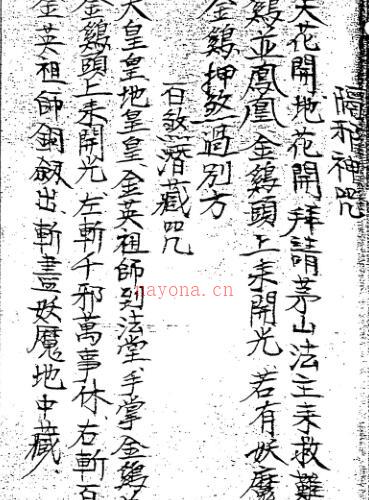 隔邪神咒
天花開地花開拜請茅山法主來救難
鷄並鳳凰金鷄頭上來開光若有妖魔
金鷄押煞過別方
百煞潛藏咒
大皇皇地皇皇金英祖師到法堂手掌金鷄
金鷄頭上來開光左斬千邪萬事休右斬百
金英祖師銅劔出斬盡妖魔地中藏
nayona.cn